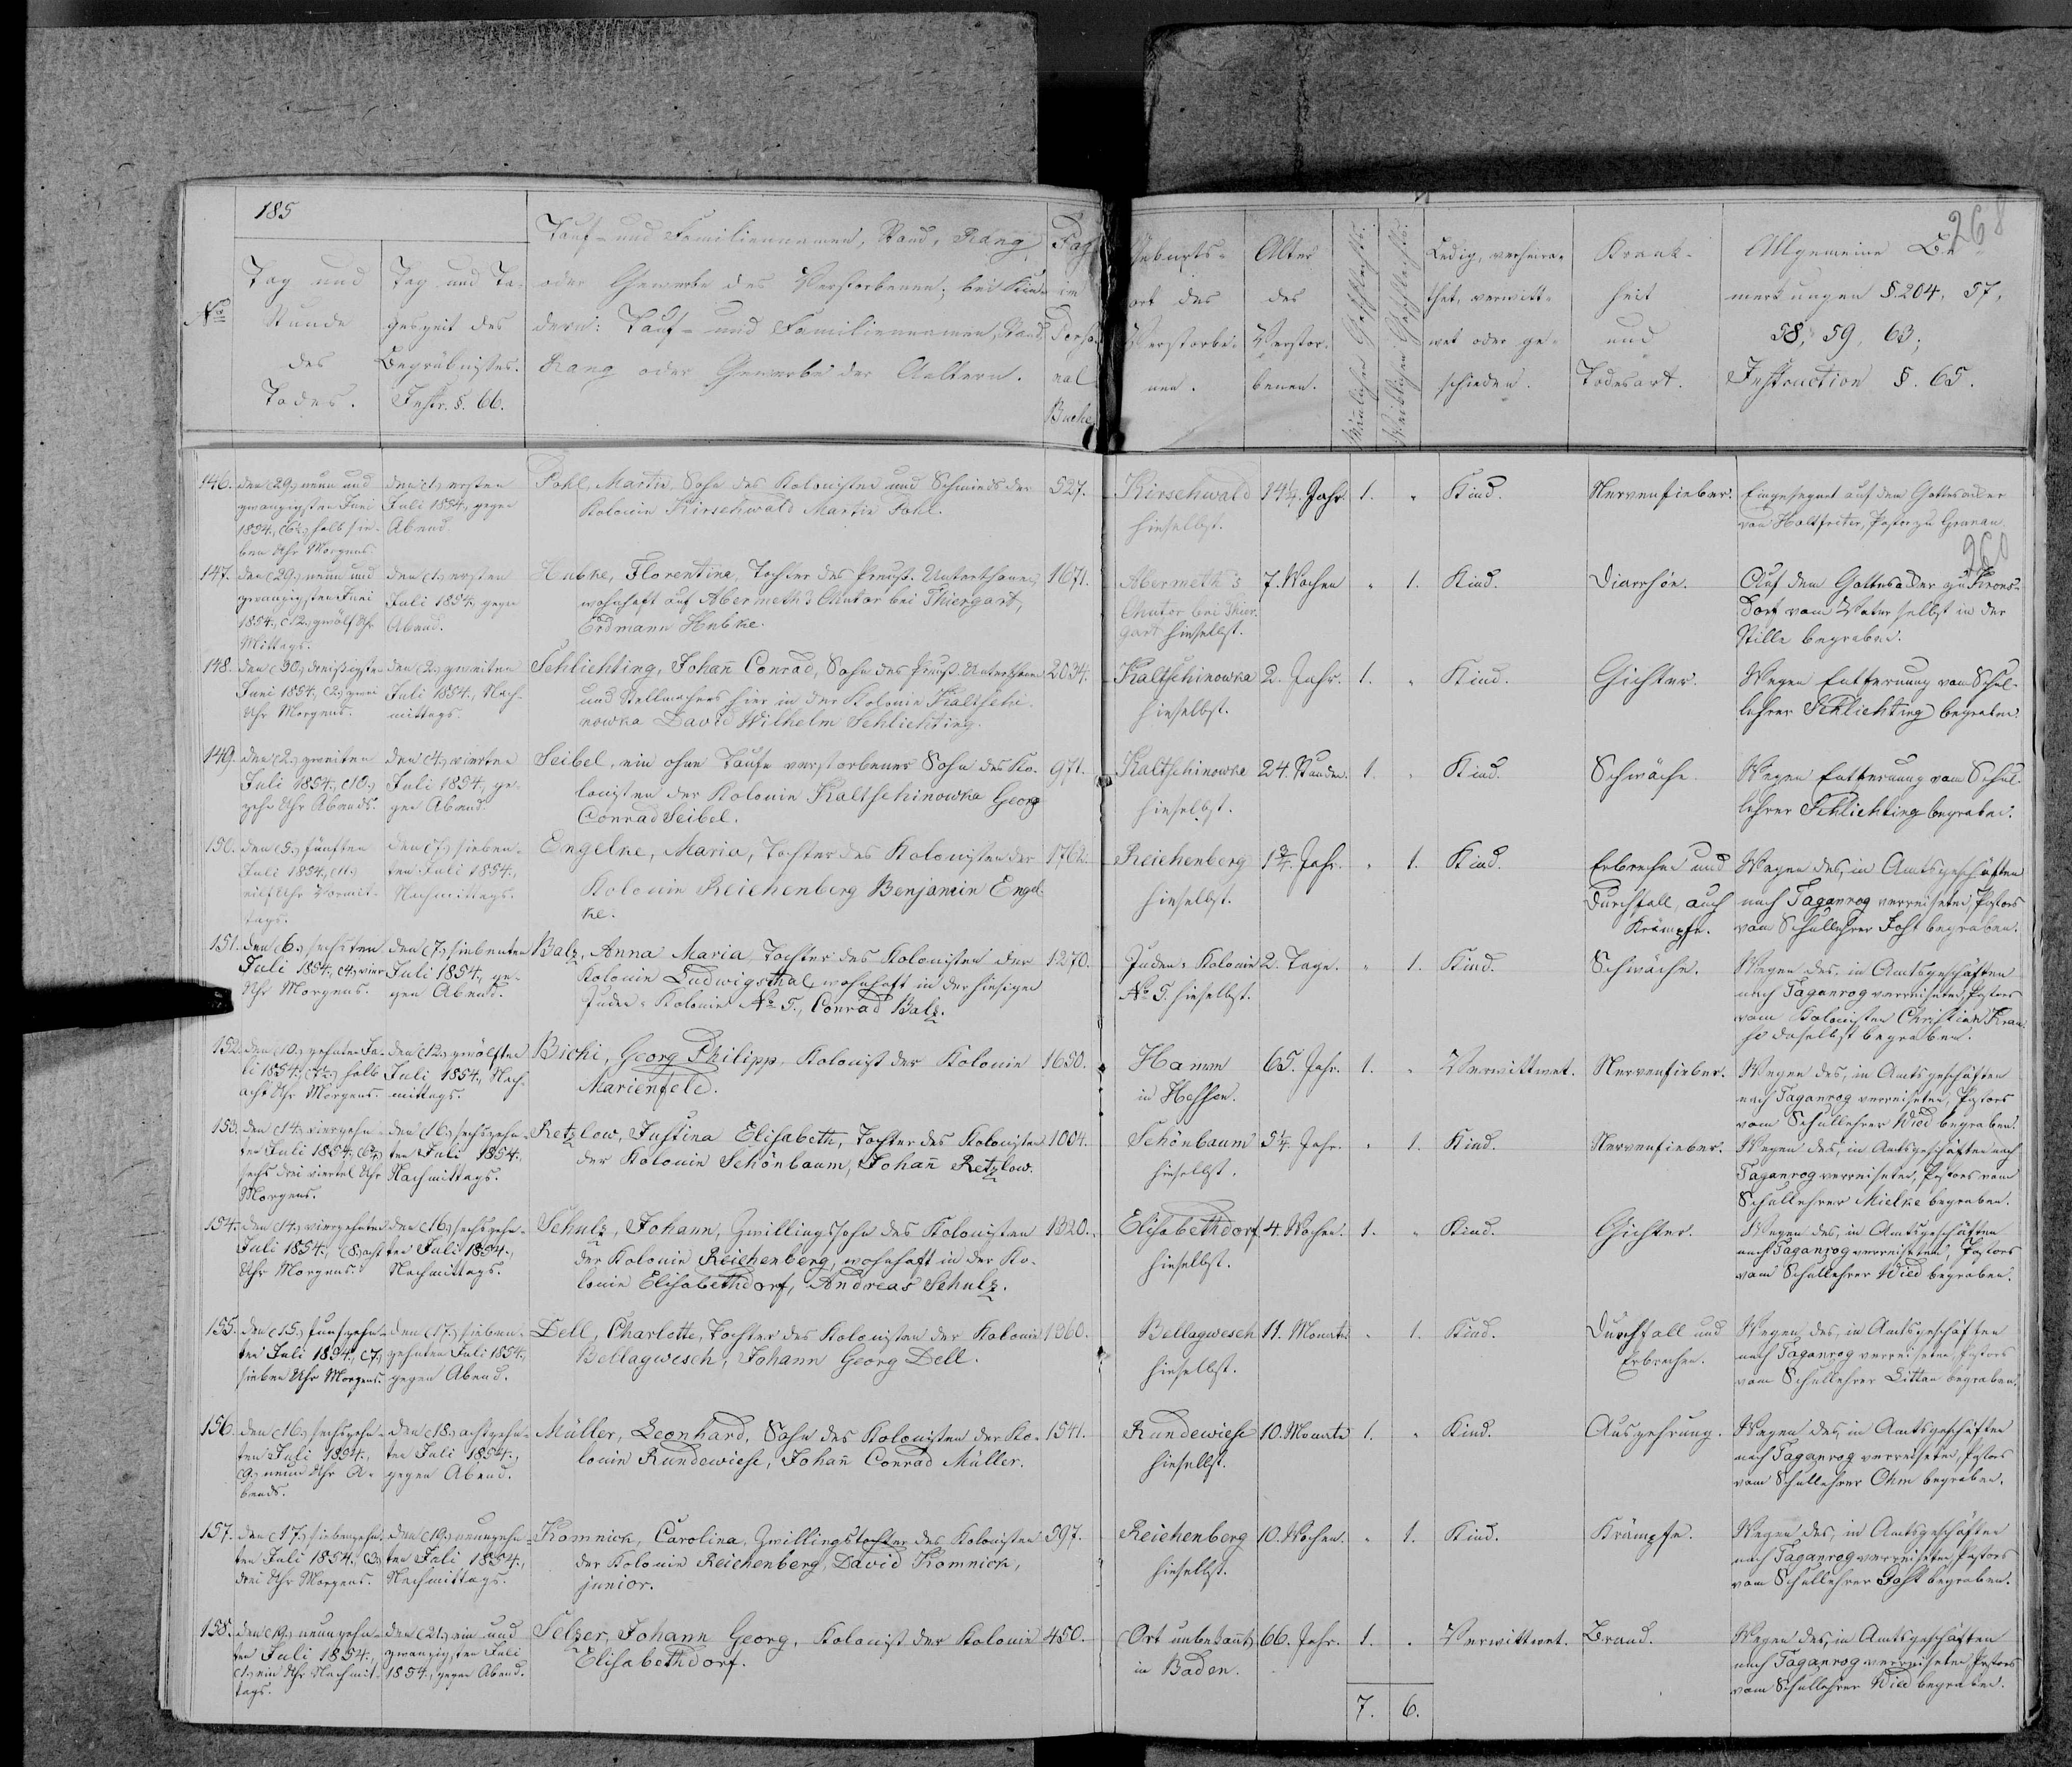 185
268
No
Tag und
Stunde
des
Todes.
Tag und Ta-
geszeit des
Begräbnisses.
Instr. §. 66.
Tauf- und Familiennamen, Stand, Rang
oder Gewerbe des Verstorbenen; bei Kin-
dern: Tauf- und Familiennamen, Stand,
Rang oder Gewerbe der Aeltern.
Pag.
im
Perso-
nal
Buche
Geburts-
ort des
Verstorbe-
nen.
Alter
des
Verstor-
benen.
Männlichen Geschlechts.
Weiblichen Geschlechts.
Ledig, verheira-
thet, verwitt-
wet oder ge-
schieden.
Krank-
heit
und
Todesart.
Allgemeine Be-
merkungen §. 204, 57,
58, 59, 63;
Instruction §. 65.
146.
den (29.) neun und
zwanzigsten Juni
1854., (6½) halb sie-
ben Uhr Morgens.
den (1.) ersten
Juli 1854, gegen
Abend.
Pohl, Martin, Sohn des Kolonisten und Schmieds der
Kolonie Kirschwald Martin Pohl.
527.
Kirschwald
hieselbst.
14¼. Jahr.
1.
Kind.
Nervenfieber.
Eingesegnet auf dem Gottesacker
von Holtfreter, Pastor zu Grunau.
260
147.
den (29.) neun und
zwanzigsten Juni
1854., (12.) zwölf Uhr
Mittags.
den (1.) ersten
Juli 1854, gegen
Abend.
Hubke, Florentina, Tochter des Preuß. Unterthanen,
wohnhaft auf Abermeth's Chutor bei Thiergart,
Erdmann Hubke.
1671.
Abermeth's
Chutor bei Thier-
gart hieselbst.
7. Wochen
1.
Kind.
Diarrhöe.
Auf dem Gottesacker zu Krons-
dorf vom Vater selbst in der
Stille begraben.
148.
den (30.) dreißigsten
Juni 1854, (2.) zwei
Uhr Morgens.
den (2.) zweiten
Juli 1854., Nach-
mittags.
Schlichting, Johañ Conrad, Sohn des Preuß. Unterthanen
und Stellmachers hier in der Kolonie Kaltschi-
nowka David Wilhelm Schlichting.
2034.
Kaltschinowka
hieselbst.
2. Jahr.
1.
Kind.
Gichter.
Wegen Entfernung vom Schul-
lehrer Schlichting begraben.
149.
den (2.) zweiten
Juli 1854., (10.)
zehn Uhr Abends.
den (4.) vierten
Juli 1854, ge-
gen Abend.
Seibel, ein ohne Taufe verstorbener Sohn des Ko-
lonisten der Kolonie Kaltschinowka Georg
Conrad Seibel.
971.
Kaltschinowka
hieselbst.
24. Stunden.
1.
Kind.
Schwäche.
Wegen Entfernung vom Schul-
lehrer Schlichting begraben.
150.
den (5.) fünften
Juli 1854, (11.)
eilf Uhr Vormit-
tags.
den (7.) sieben-
ten Juli 1854.,
Nachmittags.
Engelke, Maria, Tochter des Kolonisten der
Kolonie Reichenberg Benjamin Engel-
ke.
1762.
Reichenberg
hieselbst.
1¾. Jahr.
1.
Kind.
Erbrechen und
Durchfall, auch
Krämpfe.
Wegen des, in Amtsgeschäften
nach Taganrog verreiseten, Pastors
vom Schullehrer Jost begraben.
151.
den (6.) sechsten
Juli 1854, (4.) vier
Uhr Morgens.
den (7.) siebenten
Juli 1854., ge-
gen Abend.
Balz, Anna Maria, Tochter des Kolonisten der
Kolonie Ludwigsthal, wohnhaft in der hiesigen
Juden-Kolonie No 5., Conrad Balz.
1270.
Juden-Kolonie
No 5. hieselbst.
2. Tage.
1.
Kind.
Schwäche.
Wegen des, in Amtsgeschäften
nach Taganrog verreiseten, Pastors
vom Kolonisten Christian Krau-
se daselbst begraben.
152.
den (10.) zehnten Ju-
li 1854, (7½) halb
acht Uhr Morgens.
den (12.) zwölften
Juli 1854., Nach-
mittags.
Bichi, Georg Philipp, Kolonist der Kolonie
Marienfeld.
1650.
Hamm
in Hessen.
65. Jahr.
1.
Verwittwet.
Nervenfieber.
Wegen des, in Amtsgeschäften
nach Taganrog verreiseten, Pastors
vom Schullehrer Wied begraben.
153.
den (14.) vierzehn-
ten Juli 1854, (6¾)
sechs drei viertel Uhr
Morgens.
den (16.) sechszehn-
ten Juli 1854.,
Nachmittags.
Retzlow, Justina Elisabeth, Tochter des Kolonisten
der Kolonie Schönbaum, Johañ Retzlow.
1004.
Schönbaum
hieselbst.
5¼. Jahr.
1.
Kind.
Nervenfieber.
Wegen des, in Amtsgeschäften nach
Taganrog verreiseten, Pastors vom
Schullehrer Mielke begraben.
154.
den (14.) vierzehnten
Juli 1854., (8.) acht
Uhr Morgens.
den (16.) sechszehn-
ten Juli 1854.,
Nachmittags.
Schulz, Johann, Zwillingssohn des Kolonisten
der Kolonie Reichenberg, wohnhaft in der Ko-
lonie Elisabethdorf, Andreas Schulz.
1320.
Elisabethdorf
hieselbst.
4. Wochen.
1.
Kind.
Gichter.
Wegen des, in Amtsgeschäften
nach Taganrog verreiseten, Pastors
vom Schullehrer Wied begraben.
155.
den (15.) fünfzehn-
ten Juli 1854., (7.)
sieben Uhr Morgens.
den (17.) sieben-
zehnten Juli 1854.,
gegen Abend.
Dell, Charlotte, Tochter des Kolonisten der Kolonie
Bellagwesch, Johann Georg Dell.
1960.
Bellagwesch
hieselbst.
11. Monate
1.
Kind.
Durchfall und
Erbrechen.
Wegen des, in Amtsgeschäften
nach Taganrog verreiseten, Pastors
vom Schullehrer Littau begraben.
156.
den (16.) sechszehn-
ten Juli 1854.,
(9.) neun Uhr A-
bends.
den (18.) achtzehn-
ten Juli 1854.,
gegen Abend.
Müller, Leonhard, Sohn des Kolonisten der Ko-
lonie Rundewiese, Johañ Conrad Müller.
1541.
Rundewiese
hieselbst.
10. Monate
1.
Kind.
Auszehrung.
Wegen des, in Amtsgeschäften
nach Taganrog verreiseten, Pastors
vom Schullehrer Ohm begraben.
157.
den (17.) siebenzehn-
ten Juli 1854, (3.)
drei Uhr Morgens.
den (19.) neunzehn-
ten Juli 1854.,
Nachmittags.
Komnick, Carolina, Zwillingstochter des Kolonisten
der Kolonie Reichenberg, David Komnick,
junior.
597.
Reichenberg
hieselbst.
10. Wochen.
1.
Kind.
Krämpfe.
Wegen des, in Amtsgeschäften
nach Taganrog verreiseten, Pastors
vom Schullehrer Jost begraben.
158.
den (19.) neunzehn-
ten Juli 1854.,
(1.) ein Uhr Nachmit-
tags.
den (21.) ein und
zwanzigsten Juli
1854., gegen Abend.
Selzer, Johann Georg, Kolonist der Kolonie
Elisabethdorf.
450.
(Ort unbekañt)
in Baden.
66. Jahr.
1.
Verwittwet.
Brand.
Wegen des, in Amtsgeschäften
nach Taganrog verreiseten, Pastors
vom Schullehrer Wied begraben.
7.
6.